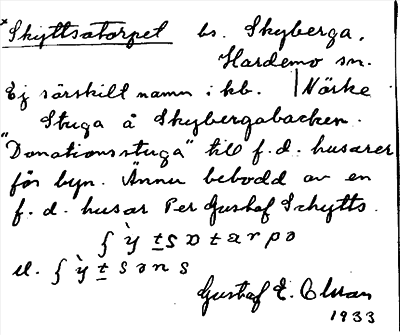 *Skyttsatorpet bs. Skyberga,
Hardemo sn.
Ej särskilt namn i kb. | Närke
Stuga å Skybergabacken.
"Donationsstuga" till f.d. husarer
för byn. Ännu bebodd av en
f.d. husar Per Gustaf Schytts.
ʃỳtsɒtarpə
el. ʃỳtsəns
Gustaf E. Olsson
1933